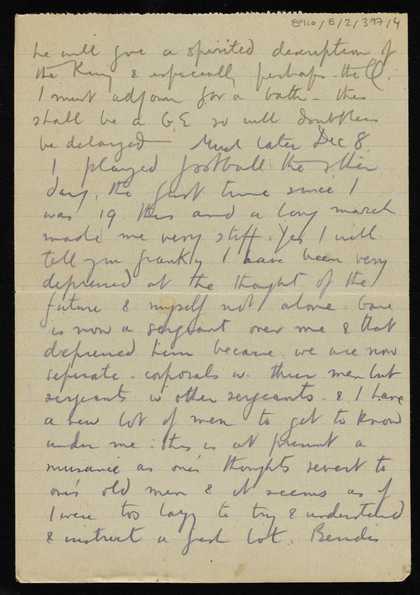 8910/5/2/397/4
he will give a spirited description of
the King & especially perhaps the Q.
I must adjourn for a bath - this
shall be a G.E so will doubtless
be delayed Much later Dec 8.
I played football the other
day, the first time since I
was 19 this and a long march
made me very stiff. Yes I will
tell you frankly I have been very
depressed at the thought of the
future & myself not alone.
is now a sergeant over me & that
depressed him because we are now
separate. corporals w. their men but
sergeants w other sergeants. & I have
a new lot of men to get to know
under me. this is at present a
nuisance as one's thoughts revert to
one's old men & it seems as if
I were too lazy to try & understand
& instruct a fresh lot. Besides